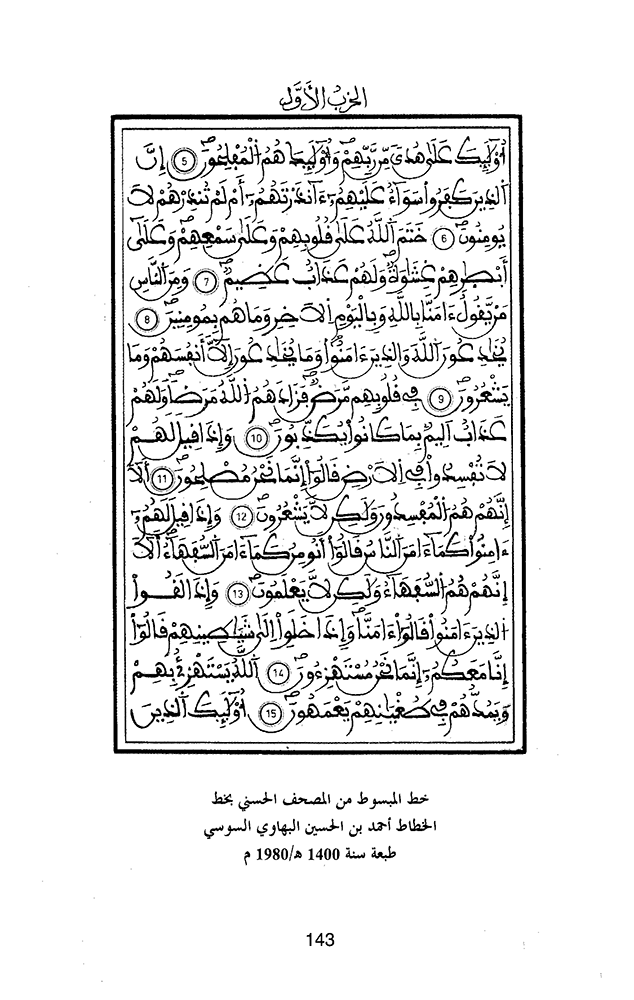 الحزب الأول
أُوْلَٰٓئِكَ عَلَىٰ هُدىٗ مِّن رَّبِّهِمْ وَأُوْلَٰٓئِكَ هُمُ الْمُفْلِحُونَ 5 إِنَّ
اَلذِينَ كَفَرُواْ سَوَآءٌ عَلَيْهِمُۥٓ ءَآنذَرْتَهُمُۥٓ أَمْ لَمْ تُنذِرْهُمْ لَا
يُومِنُونَ 6 خَتَمَ اَللَّهُ عَلَىٰ قُلُوبِهِمْ وَعَلَىٰ سَمْعِهِمْ وَعَلَىٰٓ
أَبْصَٰرِهِمْ غِشَٰوَةٌ وَلَهُمْ عَذَابٌ عَظِيمٌ 7 وَمِنَ اَلنَّاسِ
مَنْ يَّقُولُ ءَامَنَّا بِاللَّهِ وَبِالْيَوْمِ اِلَاخِرِ وَمَا هُم بِمُومِنِينَ 8
يُخَٰدِعُونَ اَللَّهَ وَالذِينَ ءَامَنُواْ وَمَا يُخَٰدِعُونَ إِلَّآ أَنفُسَهُمْ وَمَا
يَشْعُرُونَ 9 فِي قُلُوبِهِم مَّرَضٌ فَزَادَهُمُ اَللَّهُ مَرَضاٗ وَلَهُمْ
عَذَابٌ اَلِيمٌ بِمَا كَانُواْ يُكَذِّبُونَ 10 وَإِذَا قِيلَ لَهُمْ
لَا تُفْسِدُواْ فِي اِلَارْضِ قَالُوٓاْ إِنَّمَا نَحْنُ مُصْلِحُونَ 11 أَلَآ
إِنَّهُمْ هُمُ اَلْمُفْسِدُونَ وَلَٰكِن لَّا يَشْعُرُونَ 12 وَإِذَا قِيلَ لَهُمُۥٓ
ءَامِنُواْ كَمَآ ءَامَنَ اَلنَّاسُ قَالُوٓاْ أَنُومِنُ كَمَآ ءَامَنَ اَلسُّفَهَآءُ أَلَآ
إِنَّهُمْ هُمُ اَلسُّفَهَآءُ وَلَٰكِن لَّا يَعْلَمُونَ 13 وَإِذَا لَقُواْ
اَلذِينَ ءَامَنُواْ قَالُوٓاْ ءَامَنَّا وَإِذَا خَلَوِاْ اِلَىٰ شَيَٰطِينِهِمْ قَالُوٓاْ
إِنَّا مَعَكُمُۥٓ إِنَّمَا نَحْنُ مُسْتَهْزِءُونَ 14 اَللَّهُ يَسْتَهْزِئُ بِهِمْ
وَيَمُدُّهُمْ فِي طُغْيَٰنِهِمْ يَعْمَهُونَ 15 أُوْلَٰٓئِكَ اَلذِينَ
خط المبسوط من المصحف الحسني بخط
الخطاط أحمد بن الحسين البهاوي السوسي
طبعة سنة 1400 هـ/1980 م
143